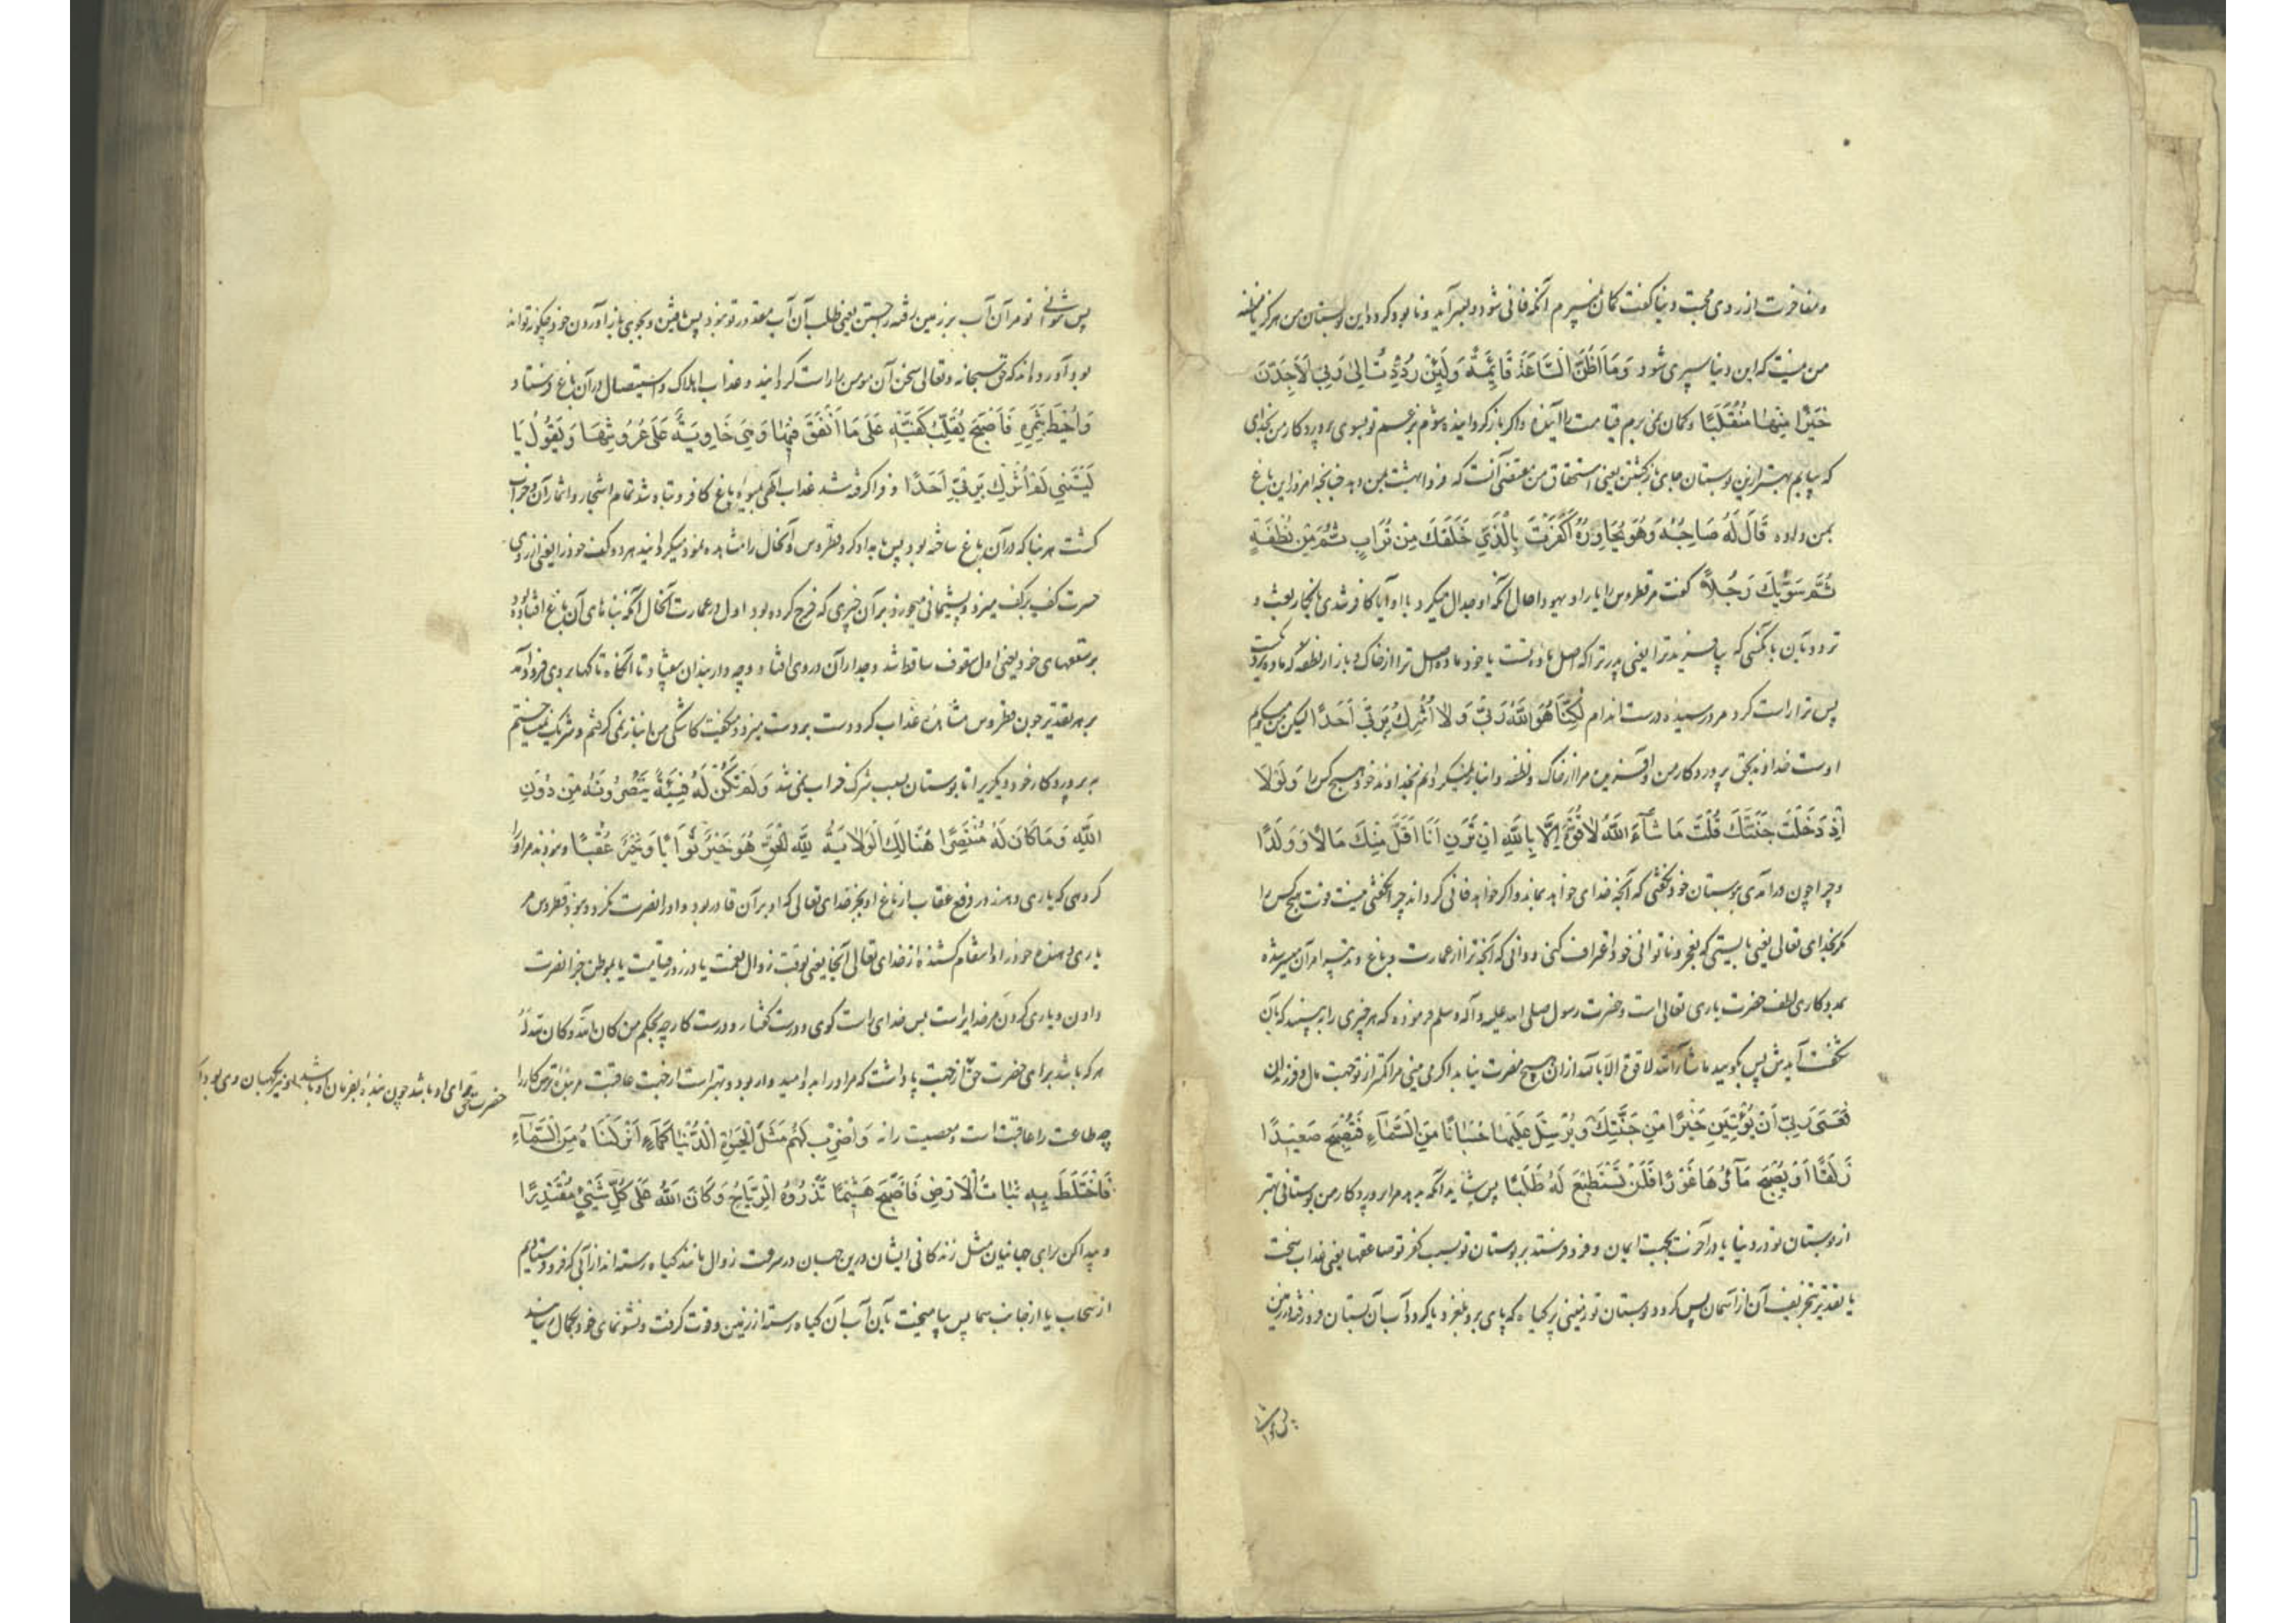 و مفاخرت از روی محبت دنیا گفت کمان نمی‌برم آنکه فانی شود و بسر آید و نابود کردد این بوستان من هرکز
من نیست که این دنیا سپری شود وَمَا اَظُنُّ السَّاعَةَ قَائِمَةً وَلَئِنْ رُدِدْتُ اِلٰى رَبِّي لَاَجِدَنَّ
خَيْرًا مِنْهَا مُنْقَلَبًا و کمان نمی برم قیامت را آینده و اکر باز کردانیده شوم بسوی پروردکار من بخدای
که بیابم بهتر ازین بوستان جای بازکشتن یعنی استحقاق من مقتضی آنست که فردا بهشت بمن دهد چنانچه امروز این باغ
بمن داده قَالَ لَهُ صَاحِبُهُ وَهُوَ يُحَاوِرُهُ اَكَفَرْتَ بِالَّذِي خَلَقَكَ مِنْ تُرَابٍ ثُمَّ مِنْ نُطْفَةٍ
ثُمَّ سَوّٰيكَ رَجُلًا گفت مر قطروس را یار او یهودا حال آنکه او جدال میکرد با او آیا کافر شدی بانکار بعث و
تردد بآن بآنکسی که بیافرید ترا یعنی پدر ترا که اصل ماده تست یا خود ماده اصل ترا از خاک و باز از نطفه که ماده
پس ترا راست کرد مرد رسیده درست اندام لٰكِنَّا هُوَ اللّٰهُ رَبِّي وَلَا اُشْرِكُ بِرَبِّي اَحَدًا لیکن من میکویم
اوست خداوند بحق پروردکار من و آفریننده مرا از خاک و نطفه و انباز نمیکردانم بخداوند خود هیچ کس را وَلَوْلَا
اِذْ دَخَلْتَ جَنَّتَكَ قُلْتَ مَا شَآءَ اللّٰهُ لَا قُوَّةَ اِلَّا بِاللّٰهِ اِنْ تَرَنِ اَنَا اَقَلَّ مِنْكَ مَالًا وَوَلَدًا
و چرا چون درآمدی ببوستان خود نکفتی که آنچه خدای خواهد بماند و اکر خواهد فانی کرداند چرا نکفتی نیست قوت هیچ کس را
مکر بخدای تعالی یعنی بایستی که بعجز و ناتوانی خود اعتراف کنی و دانی که آنچه ترا از عمارت باغ و تدبیر امر آن میسر شده
بمددکاری لطف حضرت باری تعالی است و حضرت رسول صلی الله علیه و آله و سلم فرموده که هر چیزی را ببیند که بآن
شکفت آیدش پس بکوید ما شاء الله لا قوة الا بالله ازان هیچ مضرت نیابد اکر می بینی مرا کمتر از تو جهت مال و فرزندان
فَعَسٰى رَبِّي اَنْ يُؤْتِيَنِ خَيْرًا مِنْ جَنَّتِكَ وَيُرْسِلَ عَلَيْهَا حُسْبَانًا مِنَ السَّمَآءِ فَتُصْبِحَ صَعِيدًا
زَلَقًا اَوْ يُصْبِحَ مَآؤُهَا غَوْرًا فَلَنْ تَسْتَطِيعَ لَهُ طَلَبًا پس شاید آنکه بدهد مرا پروردکار من بوستانی بهتر
از بوستان تو در دنیا یا در آخرت بجهت ایمان و فرو فرستد بر بوستان تو بسبب کفر تو صاعقها یعنی عذاب سخت
یا بتقدیر تخریب آن از آسمان پس کردد بوستان تو زمینی بی کیاه که پای برو بلغزد یا کردد آب آن بستان فرو رفته در زمین
پس نتوانی
پس نتوانی تو مر آن آب بر زمین رفته را جستن یعنی طلب آن آب مقدور تو نبود پس باز آوردن خود چکونه توانی
بود آورده‌اند که حق سبحانه و تعالی سخن آن مومن را راست کردانید و عذاب اهلاک و استیصال در آن باغ فرستاد
وَاُحِيطَ بِثَمَرِهِ فَاَصْبَحَ يُقَلِّبُ كَفَّيْهِ عَلٰى مَا اَنْفَقَ فِيهَا وَهِيَ خَاوِيَةٌ عَلٰى عُرُوشِهَا وَيَقُولُ يَا
لَيْتَنِي لَمْ اُشْرِكْ بِرَبِّي اَحَدًا و فرا کرفته شد عذاب الهی بمیوه باغ کافر و تباه شد تمام اشجار و اثمار آن و خراب
کشت هر بنا که در آن باغ ساخته بود پس بامداد کرد قطروس و آنحال را مشاهده نمود میکردانید هر دو کف خود را یعنی از روی
حسرت کف بر کف میزد و پشیمانی میخورد بر آن چیزی که خرج کرده بود اول در عمارت آنحال آنکه بناهای آن باغ افتاده بود
بر سقفهای خود یعنی اول سقوف ساقط شد و جدار آن در وی افتاد
بر هر تقدیر چون قطروس مشاهده عذاب کرد دست بر دست میزد و میکفت کاشکی من انباز نمی کرفتم و شریک نمیساختم
به پروردکار خود دیکری را تا بوستان بسبب شرک خراب نمی شد وَلَمْ تَكُنْ لَهُ فِئَةٌ يَنْصُرُونَهُ مِنْ دُونِ
اللّٰهِ وَمَا كَانَ لَهُ مُنْتَصِرًا هُنَالِكَ الْوَلَايَةُ لِلّٰهِ الْحَقِّ هُوَ خَيْرٌ ثَوَابًا وَخَيْرٌ عُقْبًا و نبودند مر او را
کروهی که یاری دهند در دفع عقاب از باغ او بجز خدای تعالی که او بر آن قادر بود و او را نصرت نکرد و نبود قطروس مر
یاری دهنده خود را و انتقام کشنده از خدای تعالی آنجا یعنی بوقت زوال نعمت یا در روز قیامت یا بموطن جزا نصرت
دادن و یاری کردن مر خدایراست پس خدای راست کوی و درست کفتار و درست کار چه بحکم من کان لله کان الله له
هر که باشد برای حضرت حق از جهت پاداشت که مر او را بدو امید وار بود و بهتر است از جهت عاقبت
حضرت حق برای او باشد چون بنده بفرمان او باشد او نیز نکهبان وی بود
چه طاعت را عاقبت است و معصیت را نه وَاضْرِبْ لَهُمْ مَثَلَ الْحَيٰوةِ الدُّنْيَا كَمَآءٍ اَنْزَلْنَاهُ مِنَ السَّمَآءِ
فَاخْتَلَطَ بِهِ نَبَاتُ الْاَرْضِ فَاَصْبَحَ هَشِيمًا تَذْرُوهُ الرِّيَاحُ وَكَانَ اللّٰهُ عَلٰى كُلِّ شَيْءٍ مُقْتَدِرًا
و پیدا کن برای جهانیان مثل زندکانی ایشان درین جهان در سرعت زوال مانند کیاه رسته اند از آبی که فرو فرستادیم
از سحاب یا از جانب سما پس بیامیخت بآن آب آن کیاه رسته از زمین و قوت کرفت و نشو نمای خود بکمال رسانید